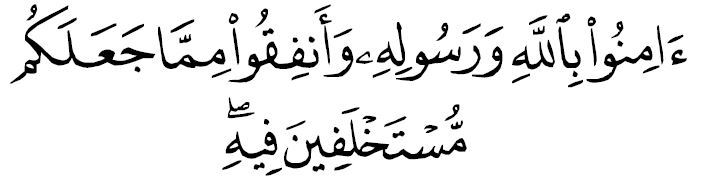 ءَامِنُوا۟ بِٱللَّهِ وَرَسُولِهِۦ وَأَنفِقُوا۟ مِمَّا جَعَلَكُم
مُّسْتَخْلَفِينَ فِيهِۖ